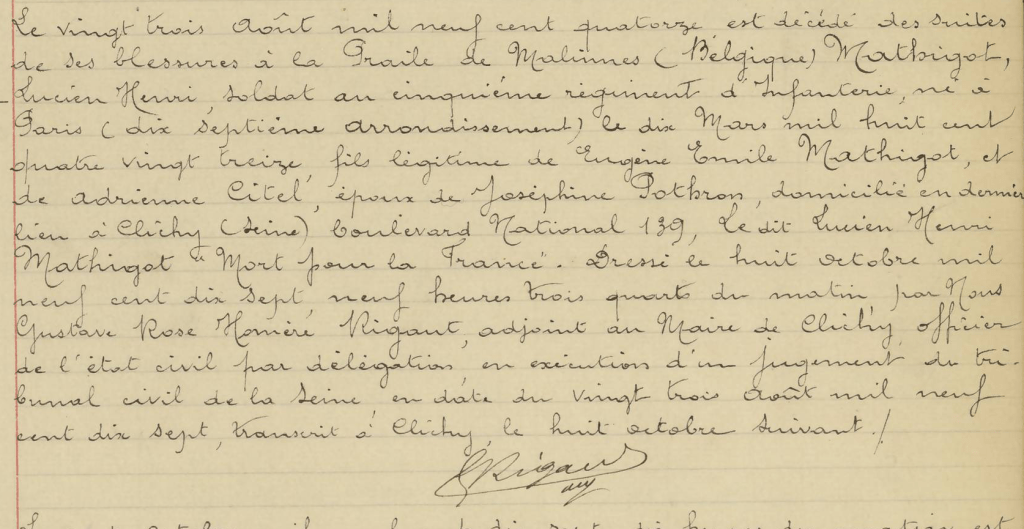 Le vingt trois Août mil neuf cent quatorze est décédé des suites
de ses blessures à la Praile de Malinnes (Bélgique) Mathigot,
Lucien Henri, soldat au cinquième régiment d'Infanterie, né à
Paris (dix septième arrondissement) le dix Mars mil huit cent
quatre vingt treize, fils légitime de Eugène Emile Mathigot, et
de Adrienne Citel, époux de Joséphine Pothron, domicilié en dernier
lieu à Clichy (Seine) boulevard National 139, Le dit Lucien Henri
Mathigot "Mort pour la France". Dressé le huit octobre mil
neuf cent dix sept, neuf heures trois quarts du matin, par Nous
Gustave Rose Homère Rigaut, adjoint au Maire de Clichy, officier
de l'état civil par délégation, en exécution d'un jugement du tri-
bunal civil de la Seine, en date du vingt trois Août mil neuf
cent dix sept, transcrit à Clichy, le huit octobre suivant./
Rigaut